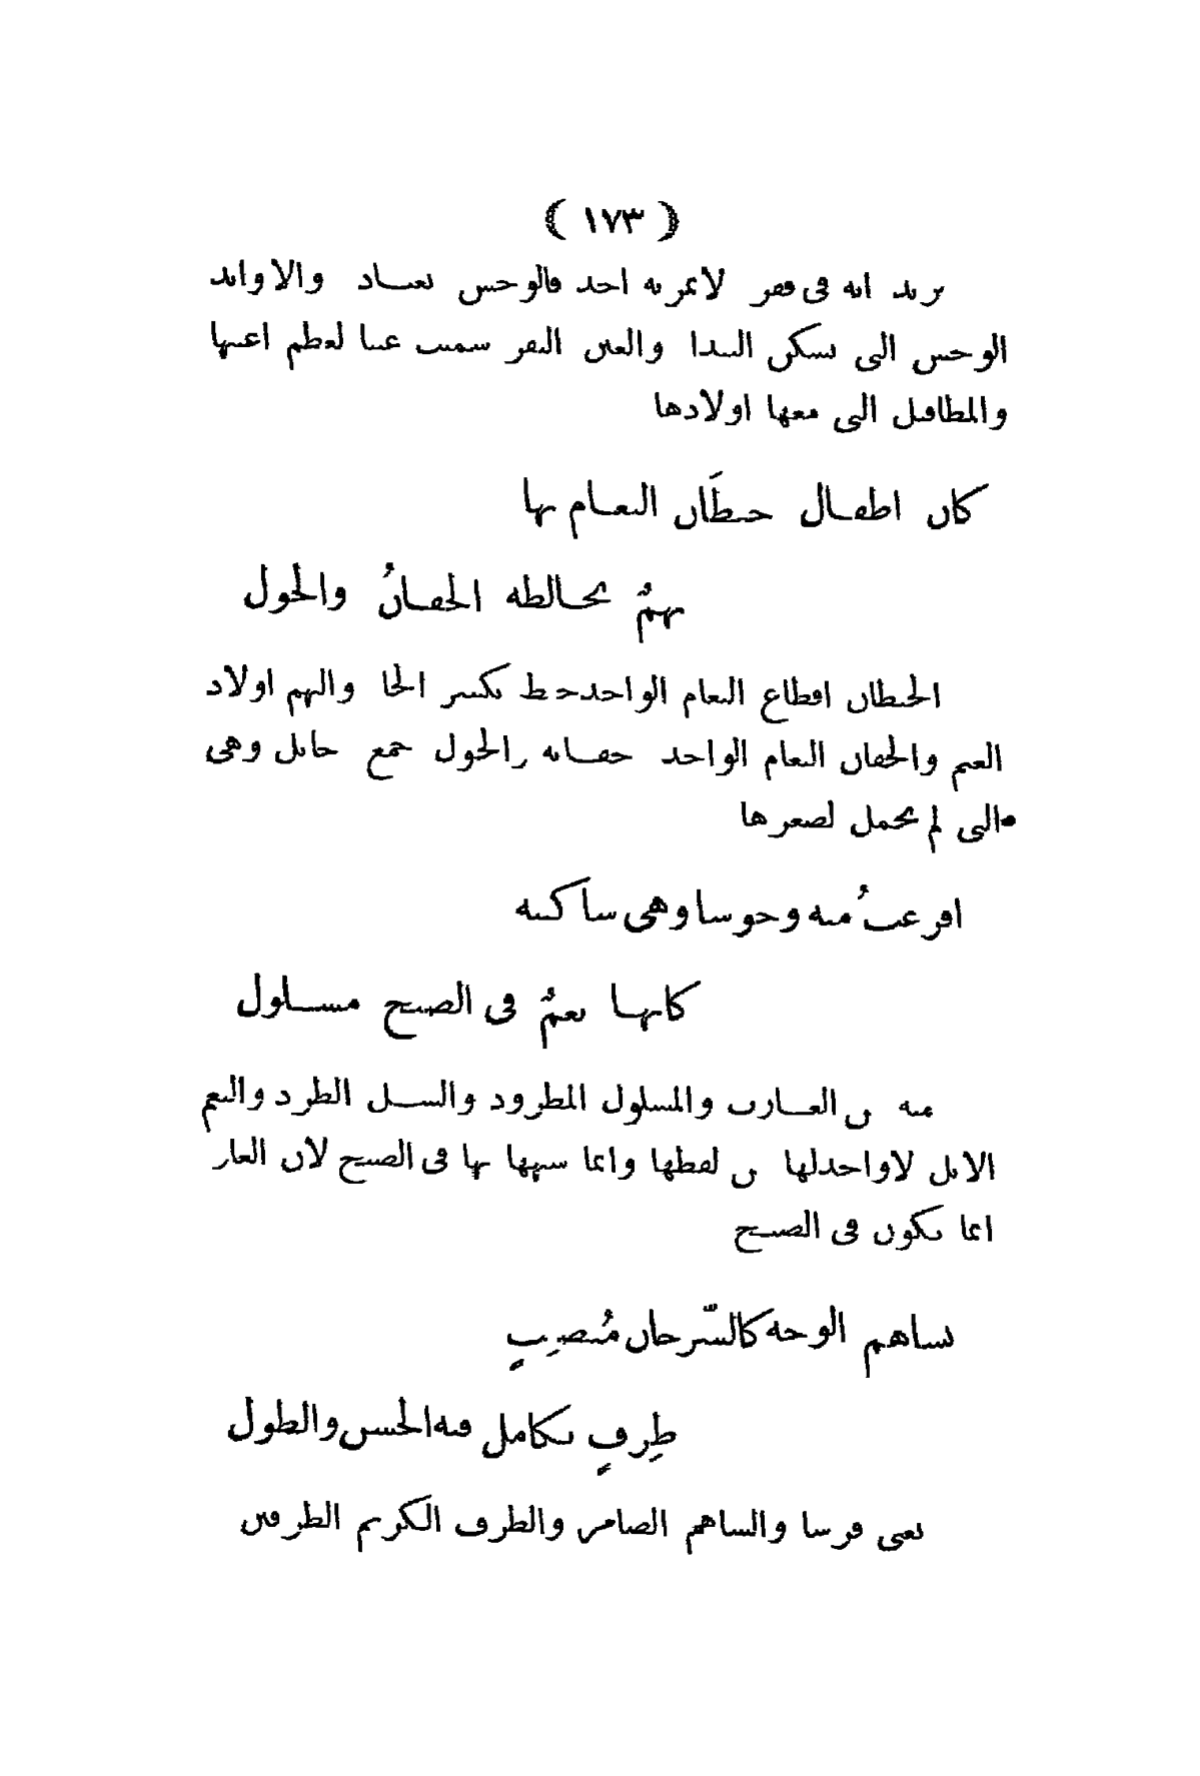 ﴿ ١٧٣ ﴾
يريد انه فى قفر لا يمر به احد فالوحش تعتاد والاوابد
الوحش التى تسكن البيدا والعين البقر سميت عينا لعظم اعينها
والمطافيل التى معها اولادها
كان اطفال خيطَان النعام بها
بهمٌ يخالطه الحفانُ والحول
الخيطان اقطاع النعام الواحد خيط بكسر الخا والبهم اولاد
الغنم والحفان النعام الواحد حفانه والحول جمع حائل وهى
التى لم تحمل لصغرها
افزعتُ منه وحوشا وهى ساكنه
كانها نعمٌ فى الصبح مشلول
منه من العازب والمشلول المطرود والشل الطرد والنعم
الابل لا واحد لها من لفظها وانما شبهها بها فى الصبح لان الغار
انما تكون فى الصبح
بساهم الوجه كالسّرحان مُنصلتٍ
طِرفٍ تكامل فيه الحسن والطول
يعنى فرسا والساهم الضامر والطرف الكريم الطرفين